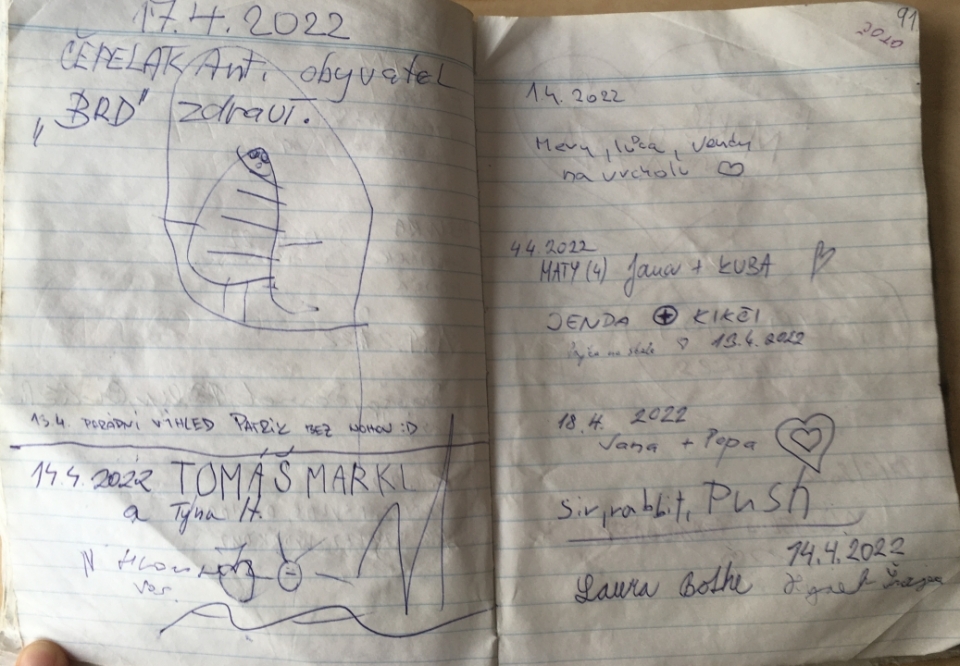 17.4.2022
ČEPELÁK Ant. obyvatel
„BRD" zdraví.
13.4. PORÁDNÍ VÍHLED PATRIK BEZ NOHOU :D
14.4.2022 TOMÁŠ MARKL
a Týna H.
91
2020
1.4. 2022
Mery, lůca, vendy
na vrcholu ♡
4.4.2022
MATY (4) Jana + KUBA
JENDA ⊕ KIKČI
na skále ♡ 13.4.2022
18.4. 2022
Jana + Pepa
Sir, rabbit, Push
14.4.2022
Laura Bothe